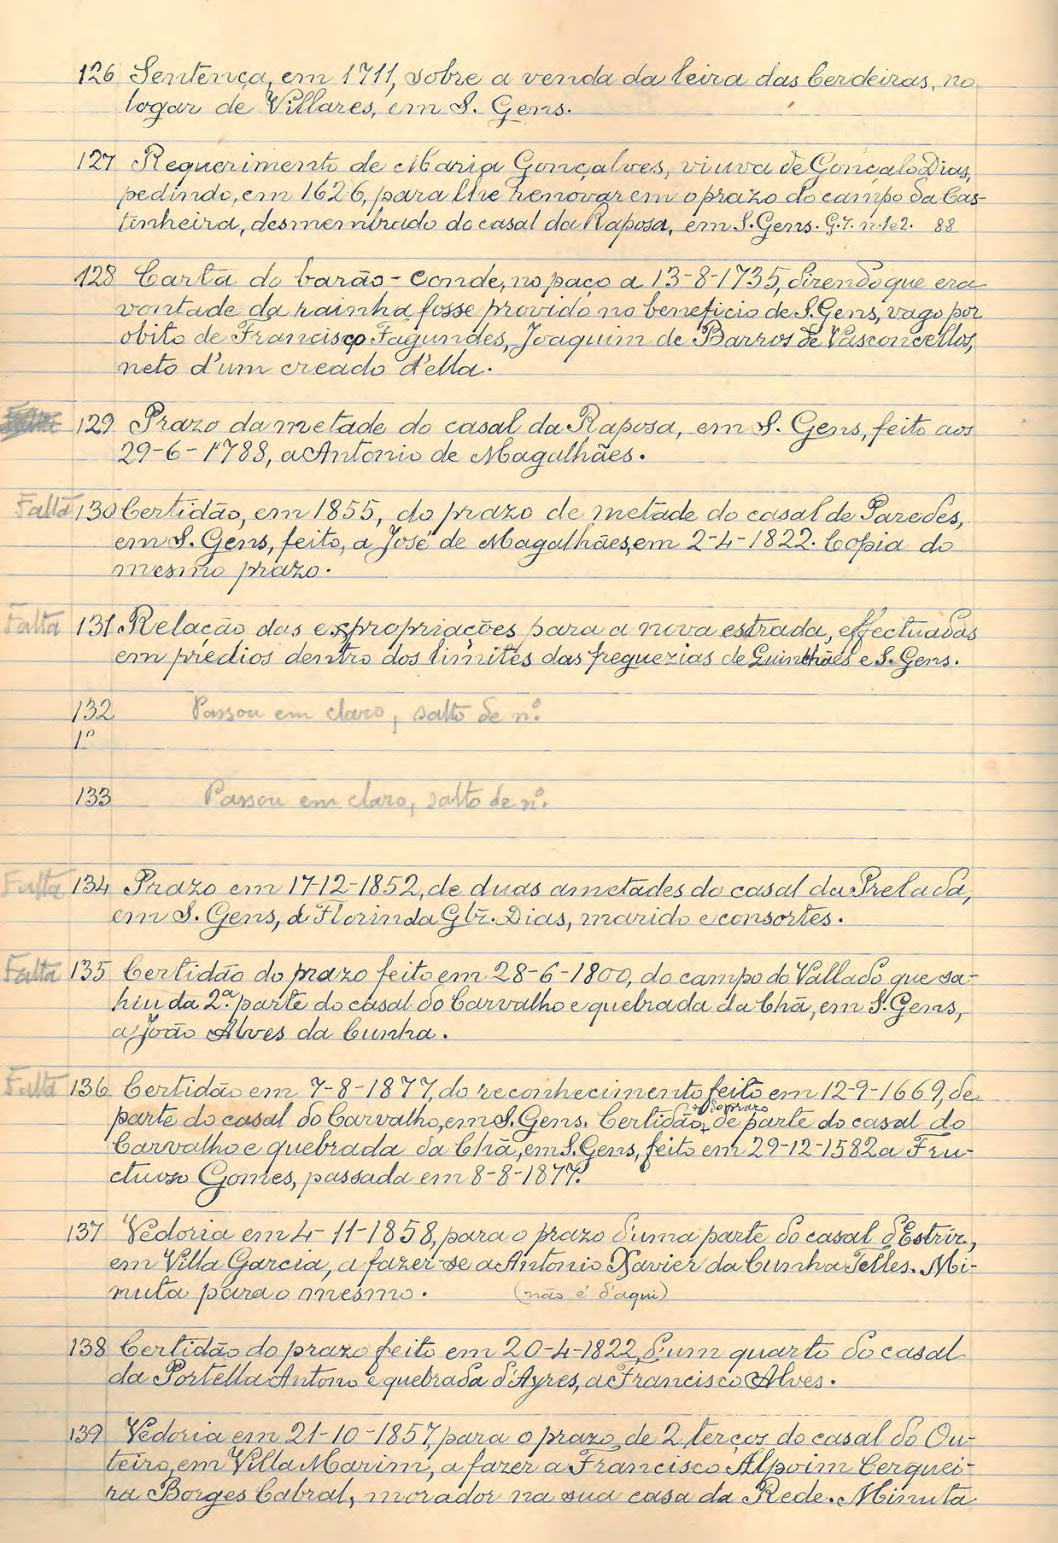 126 Sentença, em 1711, sobre a venda da leira das Cerdeiras, no
logar de Villares, em S. Gens.
127 Requerimento de Maria Gonçalves, viuva de Gonçalo Dias,
pedindo, em 1626, para lhe renovarem o prazo do campo da Cas-
tinheira, desmembrado do casal da Raposa, em S. Gens. G. 7. n. 1 e 2. 88
128 Carta do barão-conde, no paço a 13-8-1735, dizendo que era
vontade da rainha fosse provido no beneficio de S. Gens, vago por
obito de Francisco Fagundes, Joaquim de Barros de Vasconcellos,
neto d'um creado d'ella.
129 Prazo da metade do casal da Raposa, em S. Gens, feito aos
29-6-1788, a Antonio de Magalhães.
Falta 130 Certidão, em 1855, do prazo de metade do casal de Paredes,
em S. Gens, feito, a José de Magalhães, em 2-4-1822. Copia do
mesmo prazo.
Falta 131 Relação das expropriações para a nova estrada, effectuadas
em prédios dentro dos limites das freguezias de Guinchães e S. Gens.
132 Passou em claro, salto de nº.
1º
133 Passou em claro, salto de nº.
Falta 134 Prazo em 17-12-1852, de duas ametades do casal da Prelada,
em S. Gens, á Florinda Glz. Dias, marido e consortes.
Falta 135 Certidão do prazo feito em 28-6-1800, do campo do Vallado que sa-
hiu da 2ª. parte do casal do Carvalho e quebrada da Chã, em S. Gens,
a João Alves da Cunha.
Falta 136 Certidão em 7-8-1877, do reconhecimento feito em 12-9-1669, de
parte do casal do Carvalho, em S. Gens. Certidão do prazo de parte do casal do
Carvalho e quebrada da Chã, em S. Gens, feito em 29-12-1582 a Fru-
ctuoso Gomes, passada em 8-8-1877.
137 Vedoria em 4-11-1858, para o prazo d'uma parte do casal d'Estriz,
em Villa Garcia, a fazer-se a Antonio Xavier da Cunha Telles. Mi-
nuta para o mesmo. (não é d'aqui)
138 Certidão do prazo feito em 20-4-1822, d'um quarto do casal
da Portella Antono e quebrada d'Ayres, a Francisco Alves.
139 Vedoria em 21-10-1857, para o prazo, de 2 terços do casal do Ou-
teiro, em Villa Marim, a fazer a Francisco Alpoim Cerquei-
ra Borges Cabral, morador na sua casa da Rede. Minuta